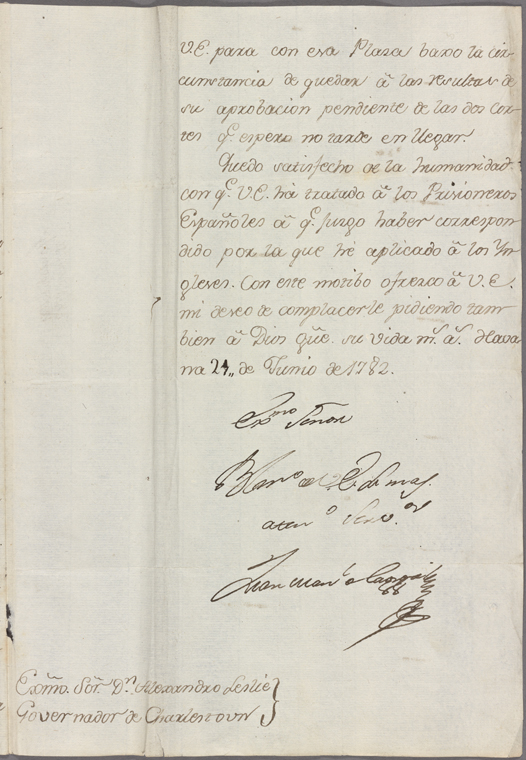 V.E. para con esa Plaza baxo la cir-
cunstancia de quedar â las resultas de
su aprobacion pendiente de las dos Cor-
tes q.e espero no tarde en llegar.
Quedo satisfecho de la humanidad
con q.e V.E. há tratado â los Prisioneros
Españoles â q.e juzgo haber correspon-
dido por la que hé aplicado â los Yn-
gleses. Con este motibo ofresco â V.E.
mi deseo de complacerle pidiendo tam-
bien â Dios güe. su vida m.s a.s Hava-
na 24,, de Junio de 1782.
Ex.mo Señor
B l m.o de V.E. su mas
aten.o Serv.or
Juan Man.l de Cagigal
Exmo. Sor. D.n Alexandro Leslie
Governador de Charlestown